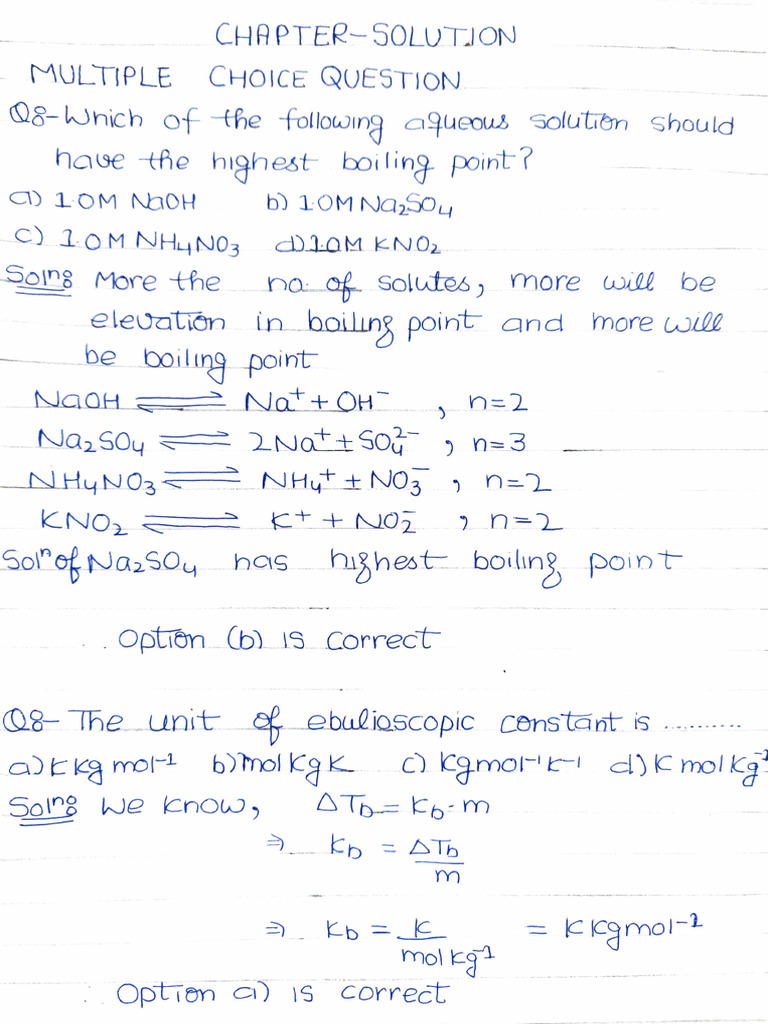 CHAPTER-SOLUTION
MULTIPLE CHOICE QUESTION
Q8-Which of the following aqueous solution should
have the highest boiling point?
a) 1.0M NaOH b) 1.0M Na₂SO₄
c) 1.0M NH₄NO₃ d) 1.0M KNO₂
Soing More the no. of solutes, more will be
elevation in boiling point and more will
be boiling point
NaOH ⇌ Na⁺ + OH⁻ , n=2
Na₂SO₄ ⇌ 2Na⁺ + SO₄²⁻ , n=3
NH₄NO₃ ⇌ NH₄⁺ + NO₃⁻ , n=2
KNO₂ ⇌ K⁺ + NO₂⁻ , n=2
Solⁿ of Na₂SO₄ has highest boiling point
Option (b) is correct
Q8- The unit of ebulioscopic constant is ..........
a) K kg mol⁻¹ b) mol Kg K c) Kgmol⁻¹K⁻¹ d) K mol Kg⁻¹
Soing We know, ΔTb = Kb·m
⇒ Kb = ΔTb/m
⇒ Kb = K/mol kg⁻¹ = K Kgmol⁻¹
Option a) is correct